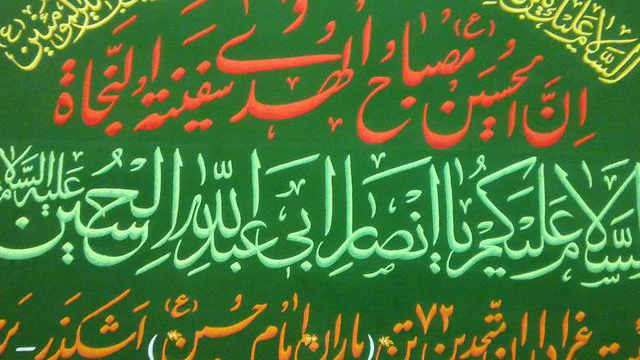 السلام علیک
إنَّ الحُسین (ع) مصباح الهُدیٰ و سفینة النَّجاة
السَّلام عَلَیکُم یا انصار ابی عبدالله الحُسین علیه السَّلام
عزاداران متحدین ۷۲ تن (یاران امام حسین (ع)) اشکذر -